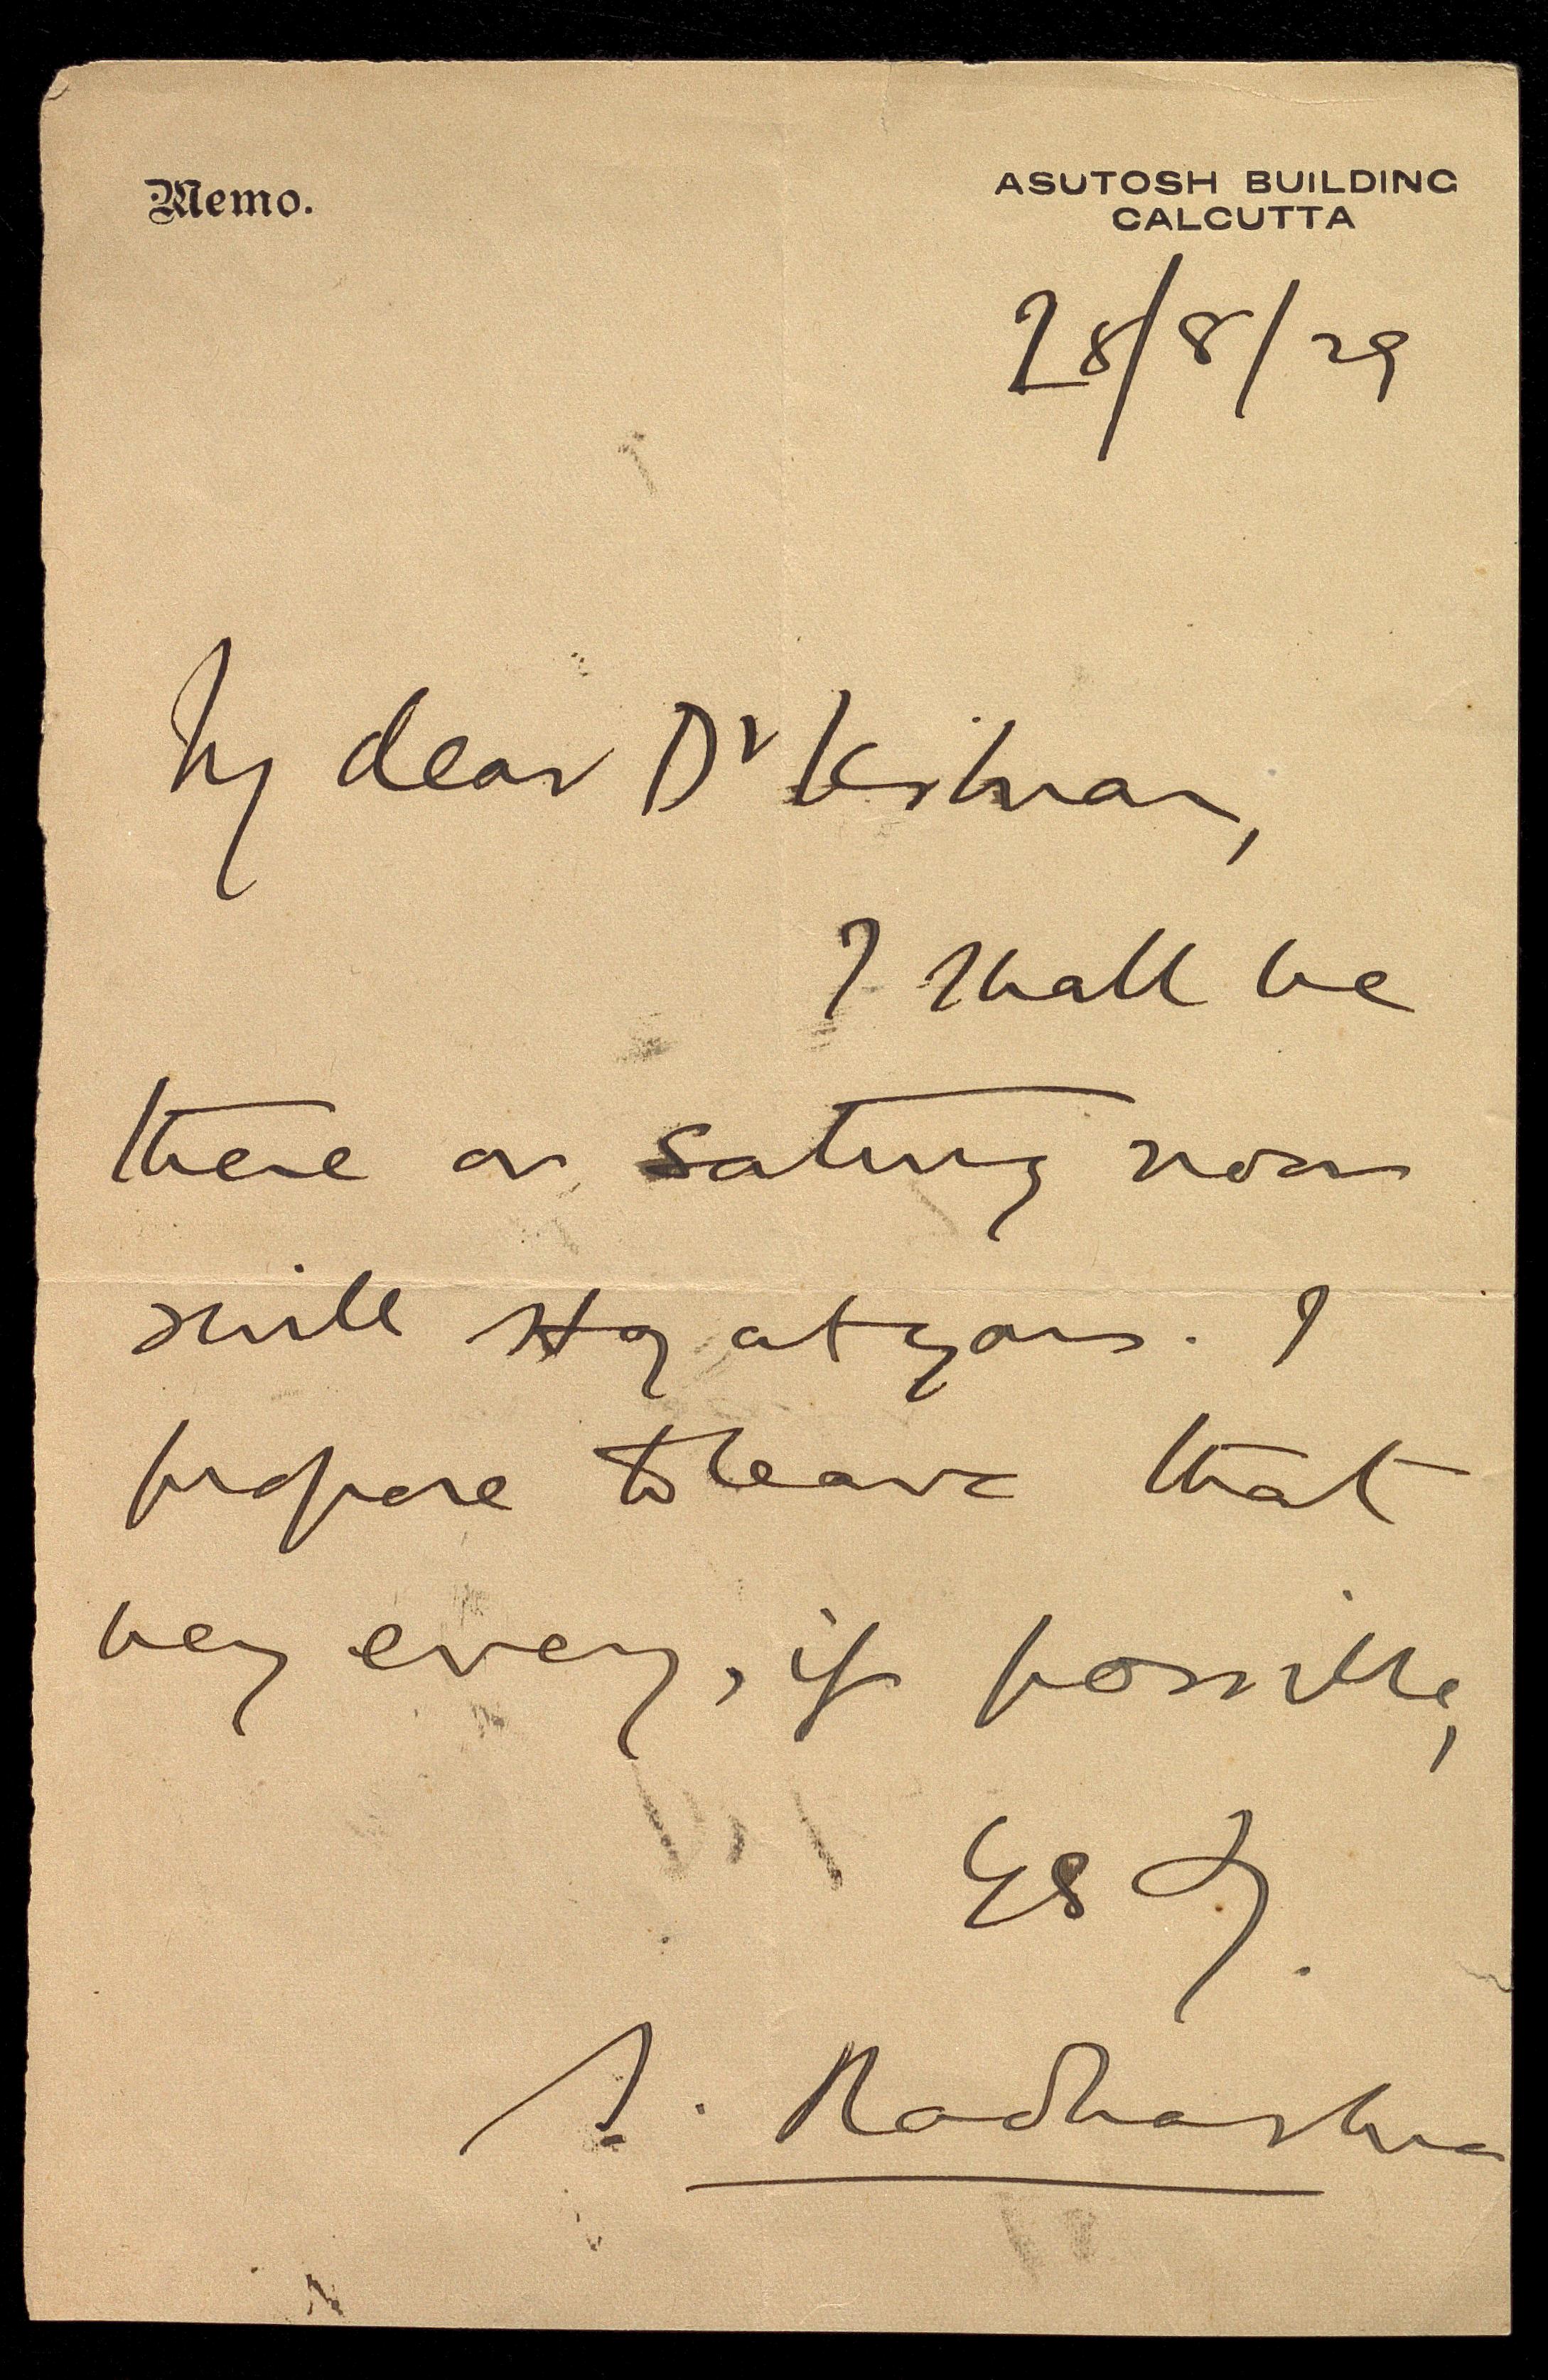 Memo.
ASUTOSH BUILDING
CALCUTTA
28/8/29
My dear Dr Kishnan,
I shall be
there on Saturday noon
& will stay at yours. I
propose to leave that
very evening, if possible,
Ys
S. Radhakrishnan